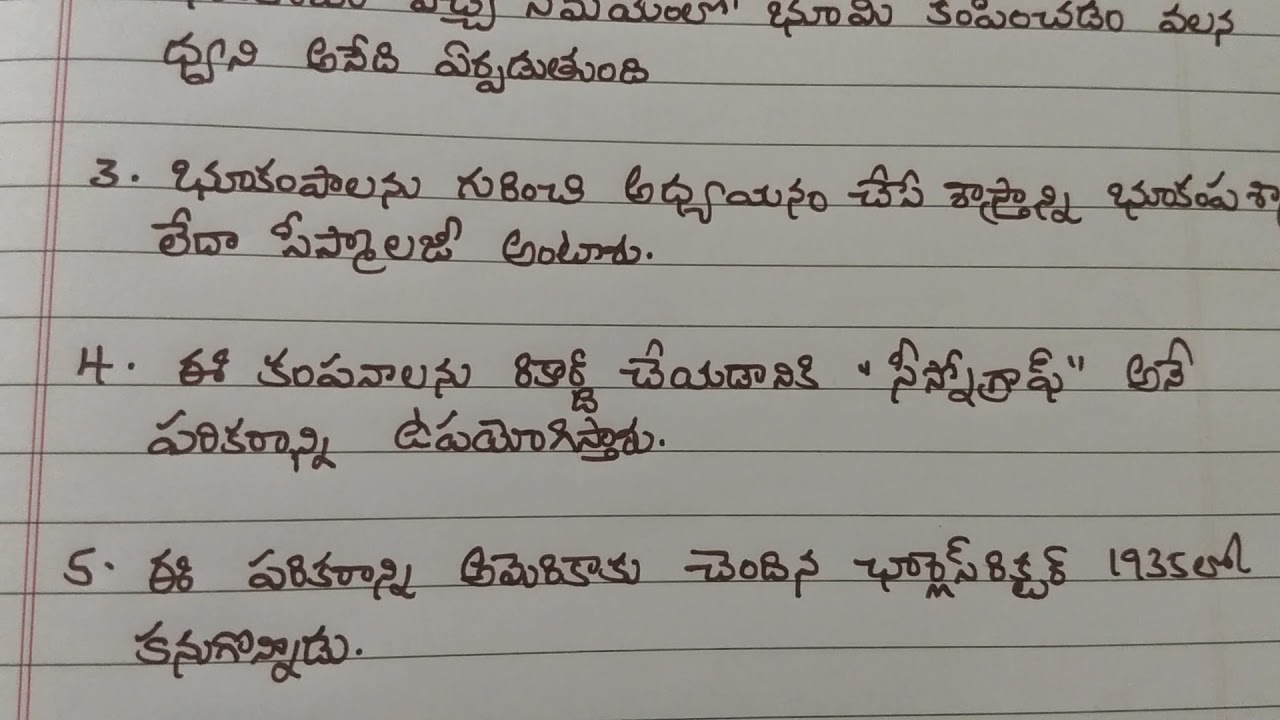 వచ్చే సమయంలో భూమి కంపించడం వలన
ధ్వని అనేది ఏర్పడుతుంది
3. భూకంపాలను గురించి అధ్యయనం చేసే శాస్త్రాన్ని భూకంప శా
లేదా సీస్మాలజీ అంటారు.
4. ఈ కంపనాలను రికార్డ్ చేయడానికి "సీస్మోగ్రాఫ్" అనే
పరికరాన్ని ఉపయోగిస్తారు.
5. ఈ పరికరాన్ని అమెరికాకు చెందిన ఛార్లెస్ రిక్టర్ 1935లో
కనుగొన్నాడు.